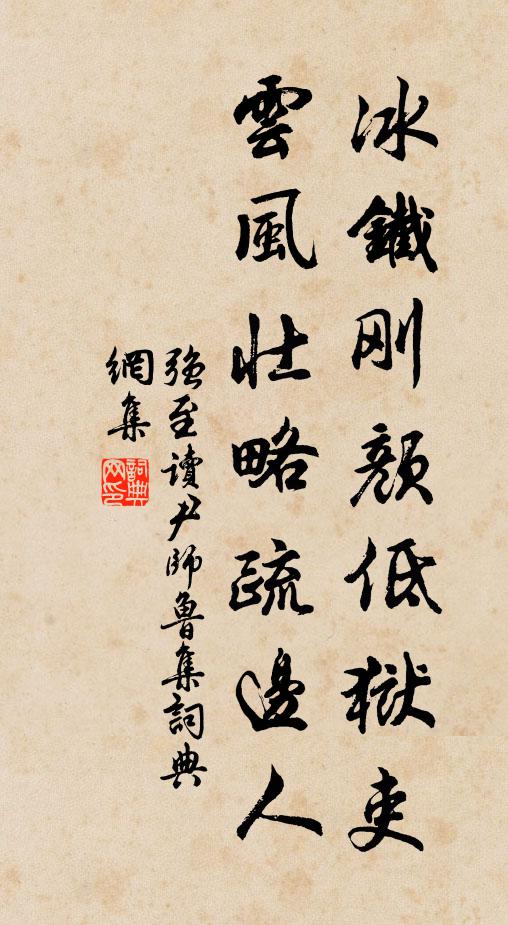 冰鐵剛顏低獄吏
雲風壯略疏邊人
強至讀尹師魯集詞典
網集
詞典
网印